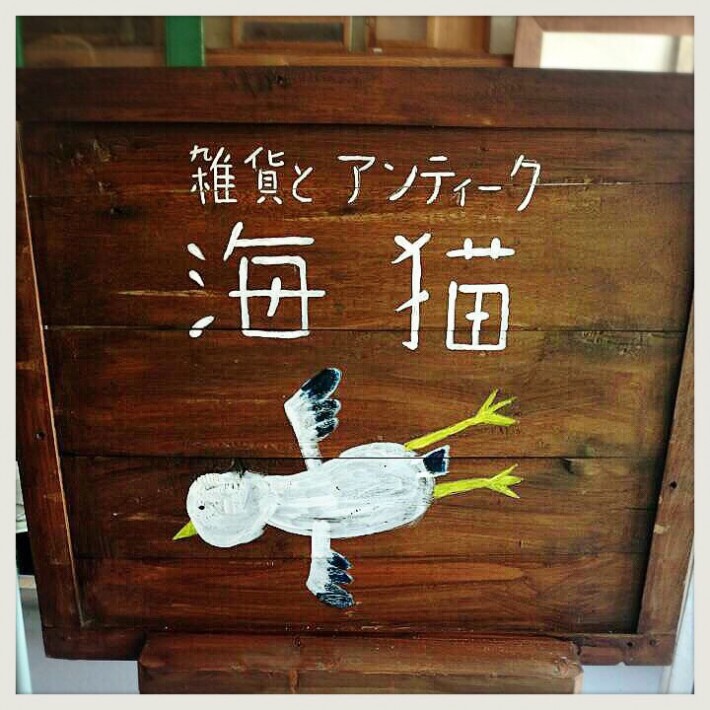 雑貨と アンティーク
海猫